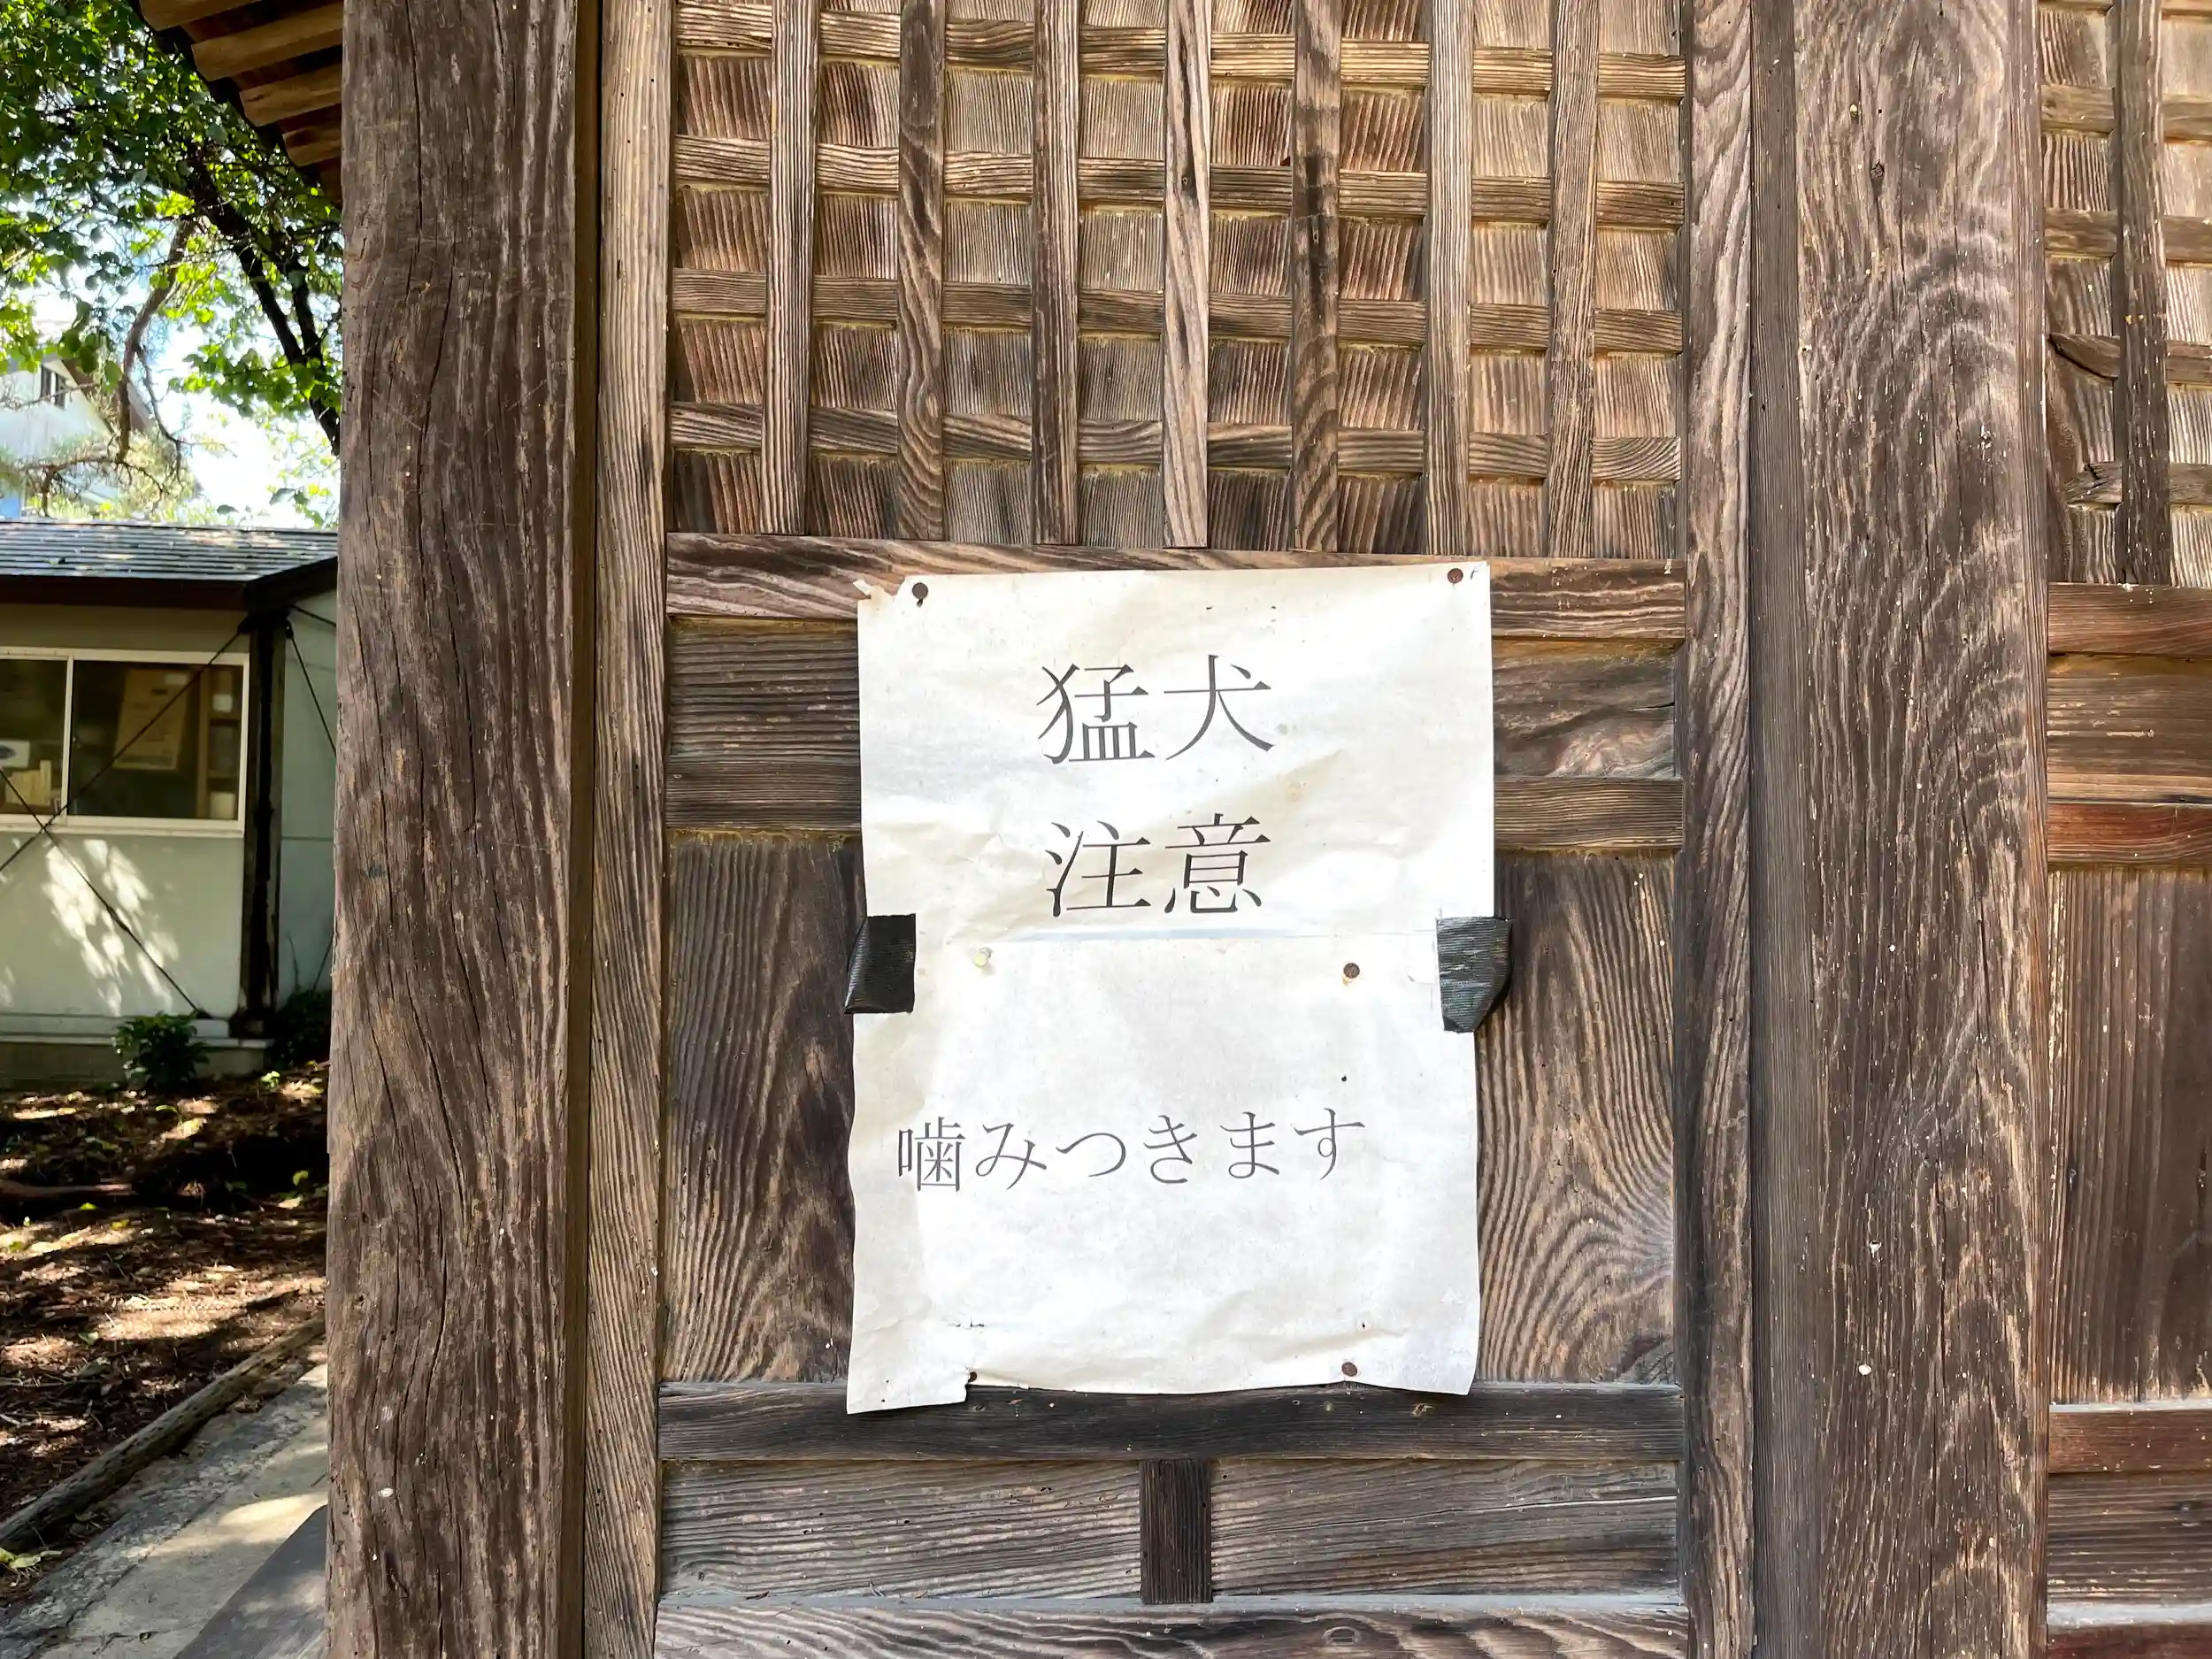 猛犬
注意
噛みつきます